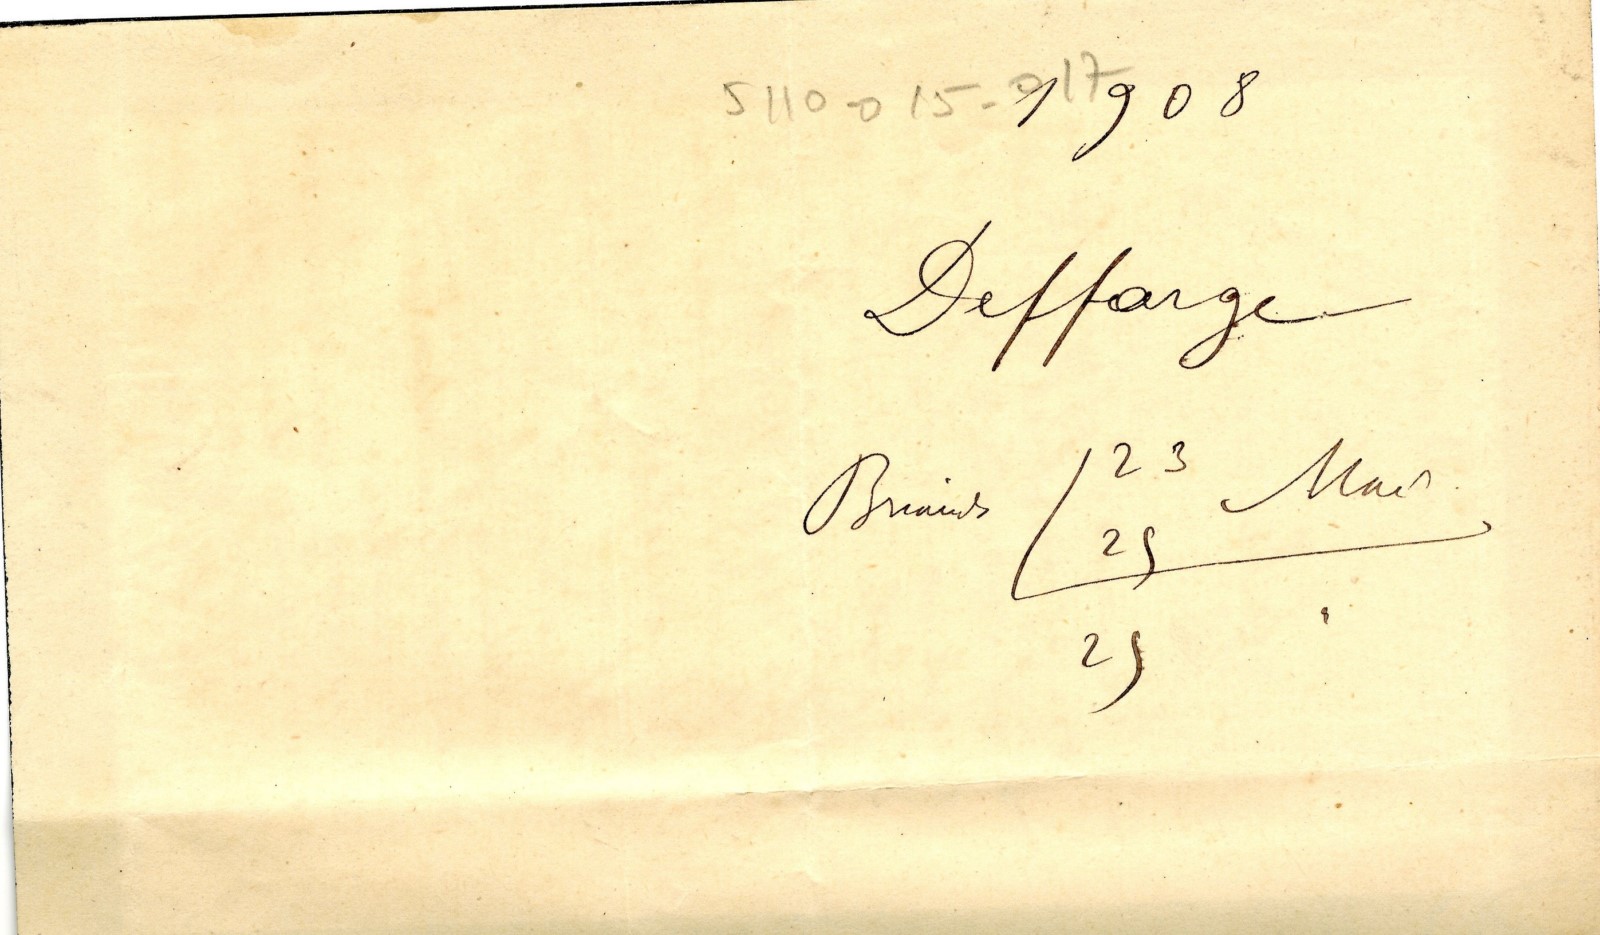 5110-015-017
1908
Deffarge
Briands 23 Mai
25
25